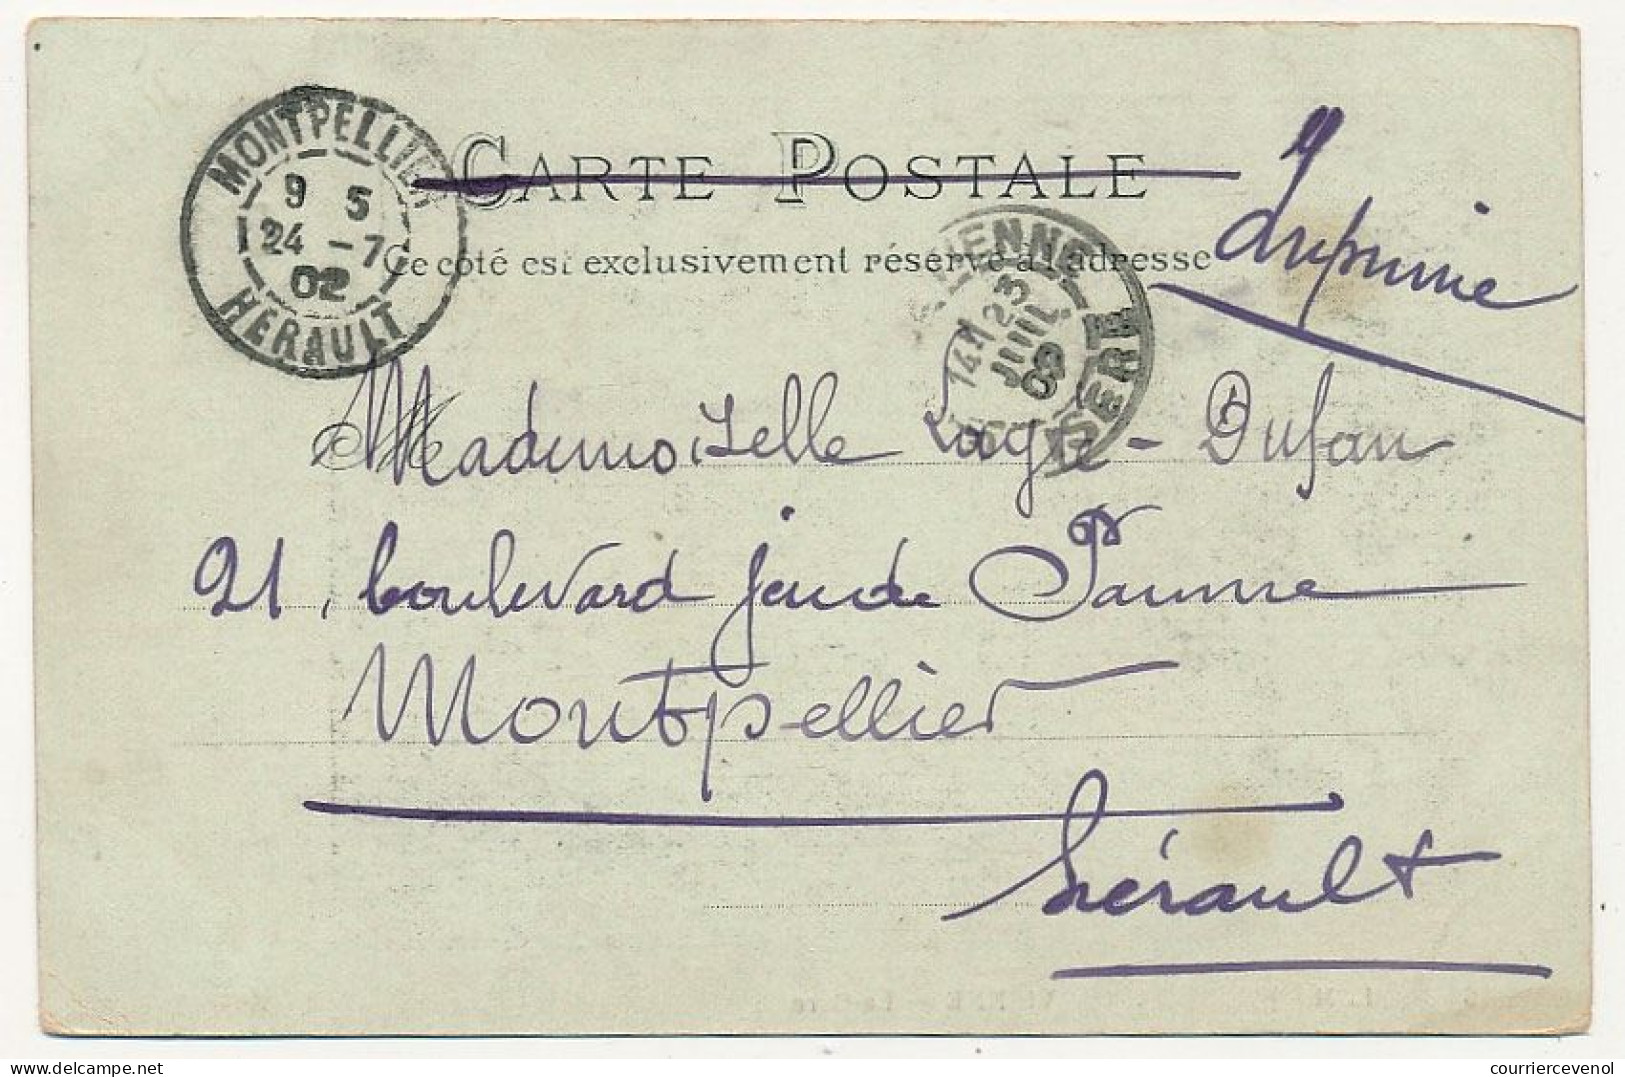 CARTE POSTALE
Ce côté est exclusivement réservé à l'adresse
Imprimé
MONTPELLIER
9 S
24 - 7
02
HERAULT
VIENNE
14H 23
JUIL
02
ISERE
Mademoiselle
21, boulevard jeu de Paume
Montpellier
Hérault
courriercevenol